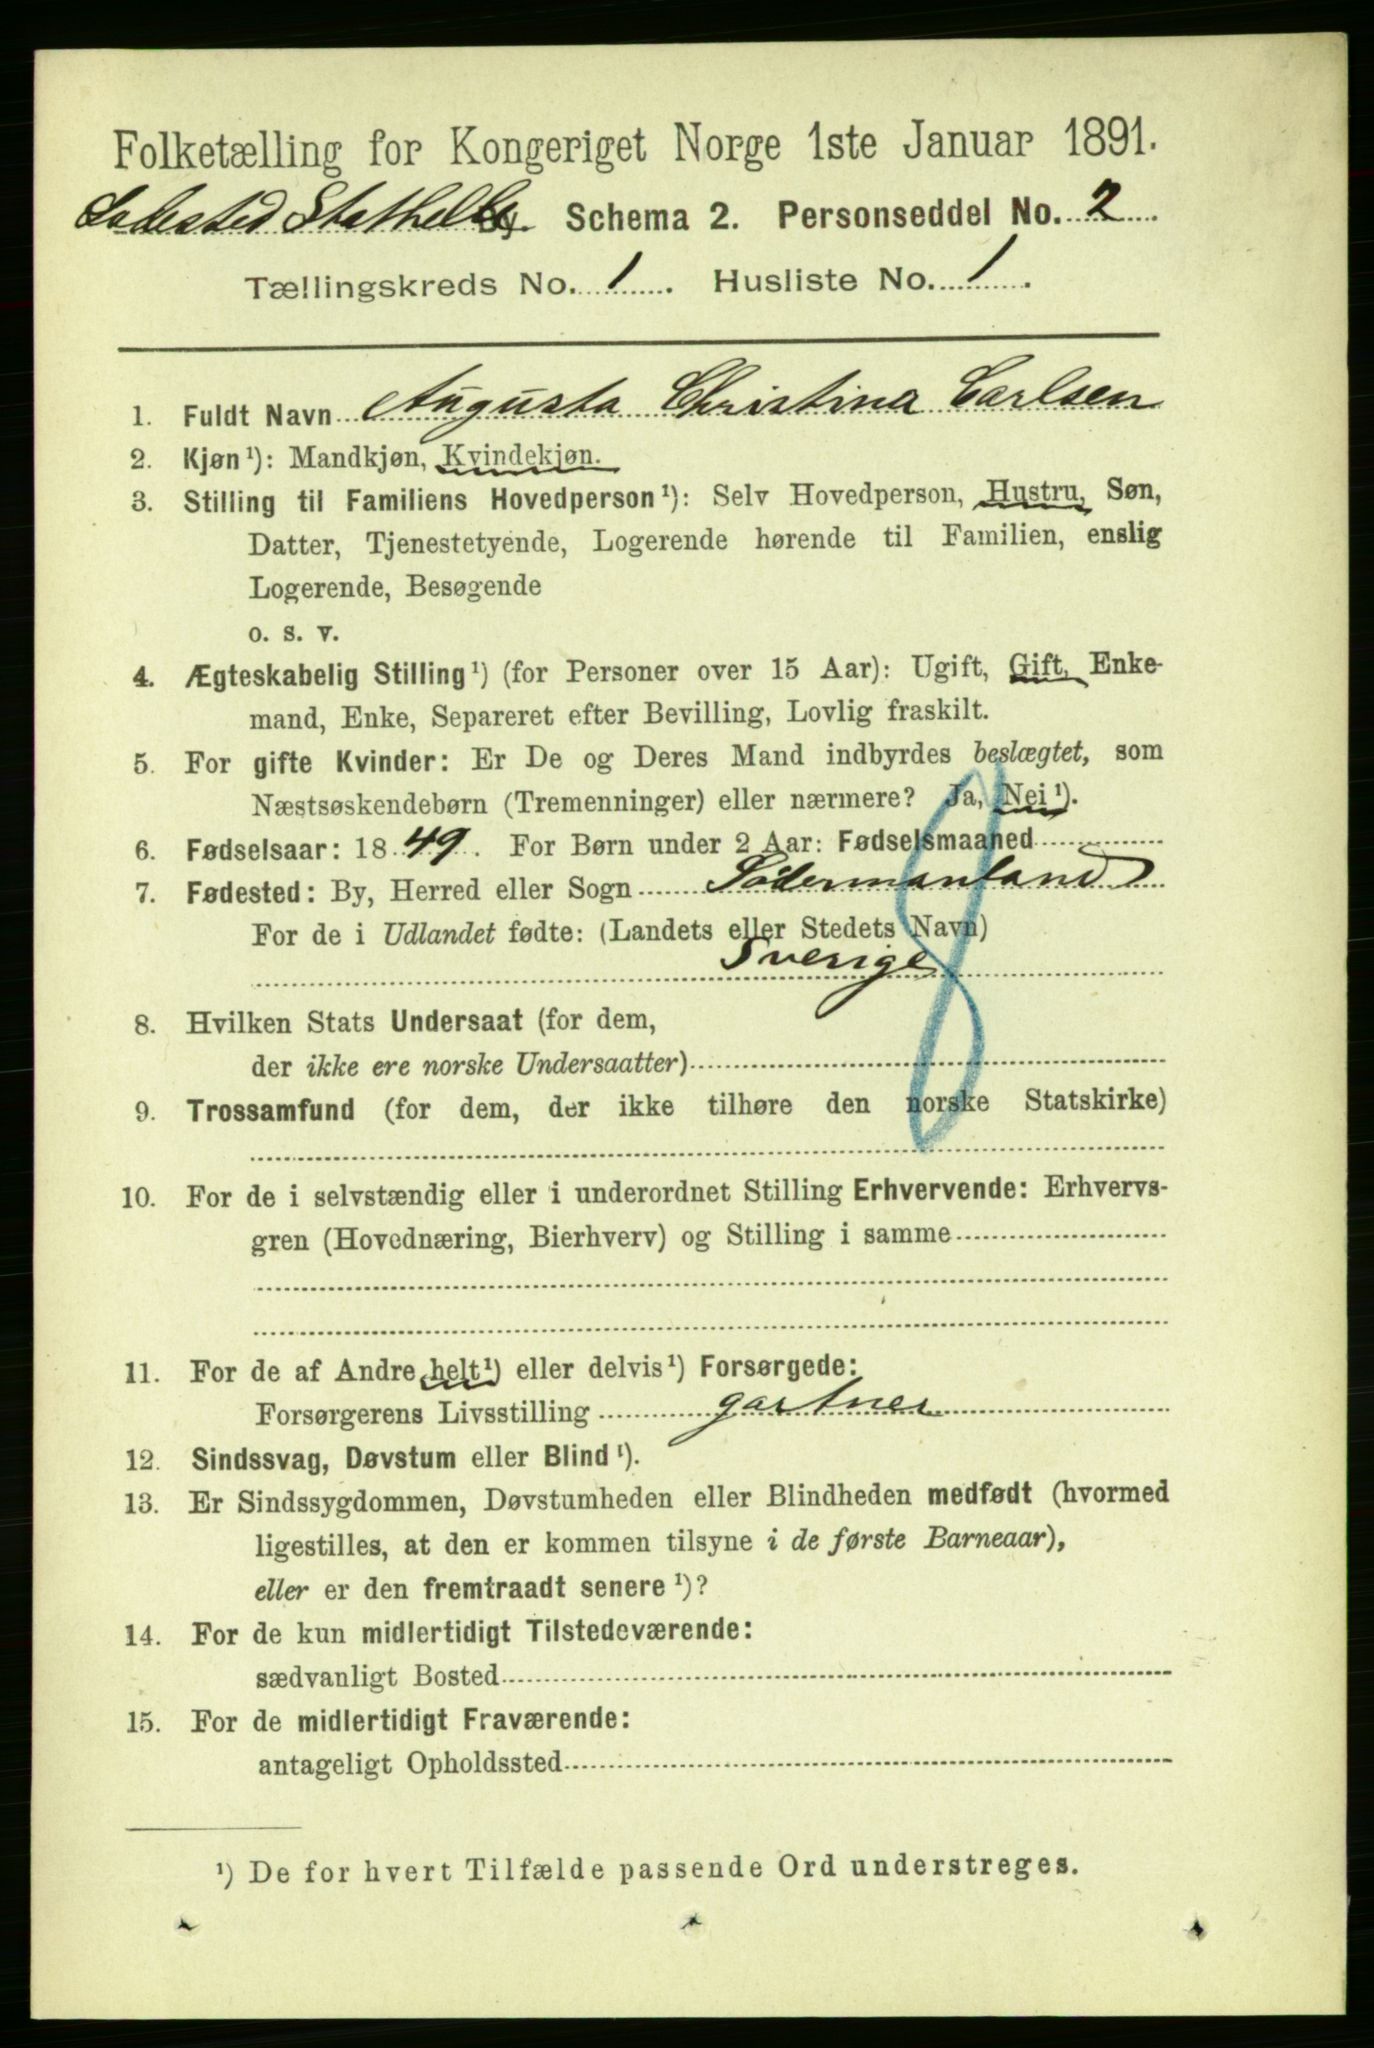 Folketælling for Kongeriget Norge 1ste Januar 1891.
Ladested Stathelle By. Schema 2. Personseddel No. 2.
Tællingskreds No. 1. Husliste No. 1.
1. Fuldt Navn Augusta Christina Carlsen
2. Kjøn¹): Mandkjøn, Kvindekjøn.
3. Stilling til Familiens Hovedperson¹): Selv Hovedperson, Hustru, Søn,
Datter, Tjenestetyende, Logerende hørende til Familien, enslig
Logerende, Besøgende
o. s. v.
4. Ægteskabelig Stilling¹) (for Personer over 15 Aar): Ugift, Gift, Enke-
mand, Enke, Separeret efter Bevilling, Lovlig fraskilt.
5. For gifte Kvinder: Er De og Deres Mand indbyrdes beslægtet, som
Næstsøskendebørn (Tremenninger) eller nærmere? Ja, Nei¹).
6. Fødselsaar: 1849. For Børn under 2 Aar: Fødselsmaaned
7. Fødested: By, Herred eller Sogn Södermanland
For de i Udlandet fødte: (Landets eller Stedets Navn)
Sverige
8. Hvilken Stats Undersaat (for dem,
der ikke ere norske Undersaatter)
9. Trossamfund (for dem, der ikke tilhøre den norske Statskirke)
10. For de i selvstændig eller i underordnet Stilling Erhvervende: Erhvervs-
gren (Hovednæring, Bierhverv) og Stilling i samme
11. For de af Andre helt¹) eller delvis¹) Forsørgede:
Forsørgerens Livsstilling gartner
12. Sindssvag, Døvstum eller Blind¹).
13. Er Sindssygdommen, Døvstumheden eller Blindheden medfødt (hvormed
ligestilles, at den er kommen tilsyne i de første Barneaar),
eller er den fremtraadt senere¹)?
14. For de kun midlertidigt Tilstedeværende:
sædvanligt Bosted
15. For de midlertidigt Fraværende:
antageligt Opholdssted
¹) De for hvert Tilfælde passende Ord understreges.